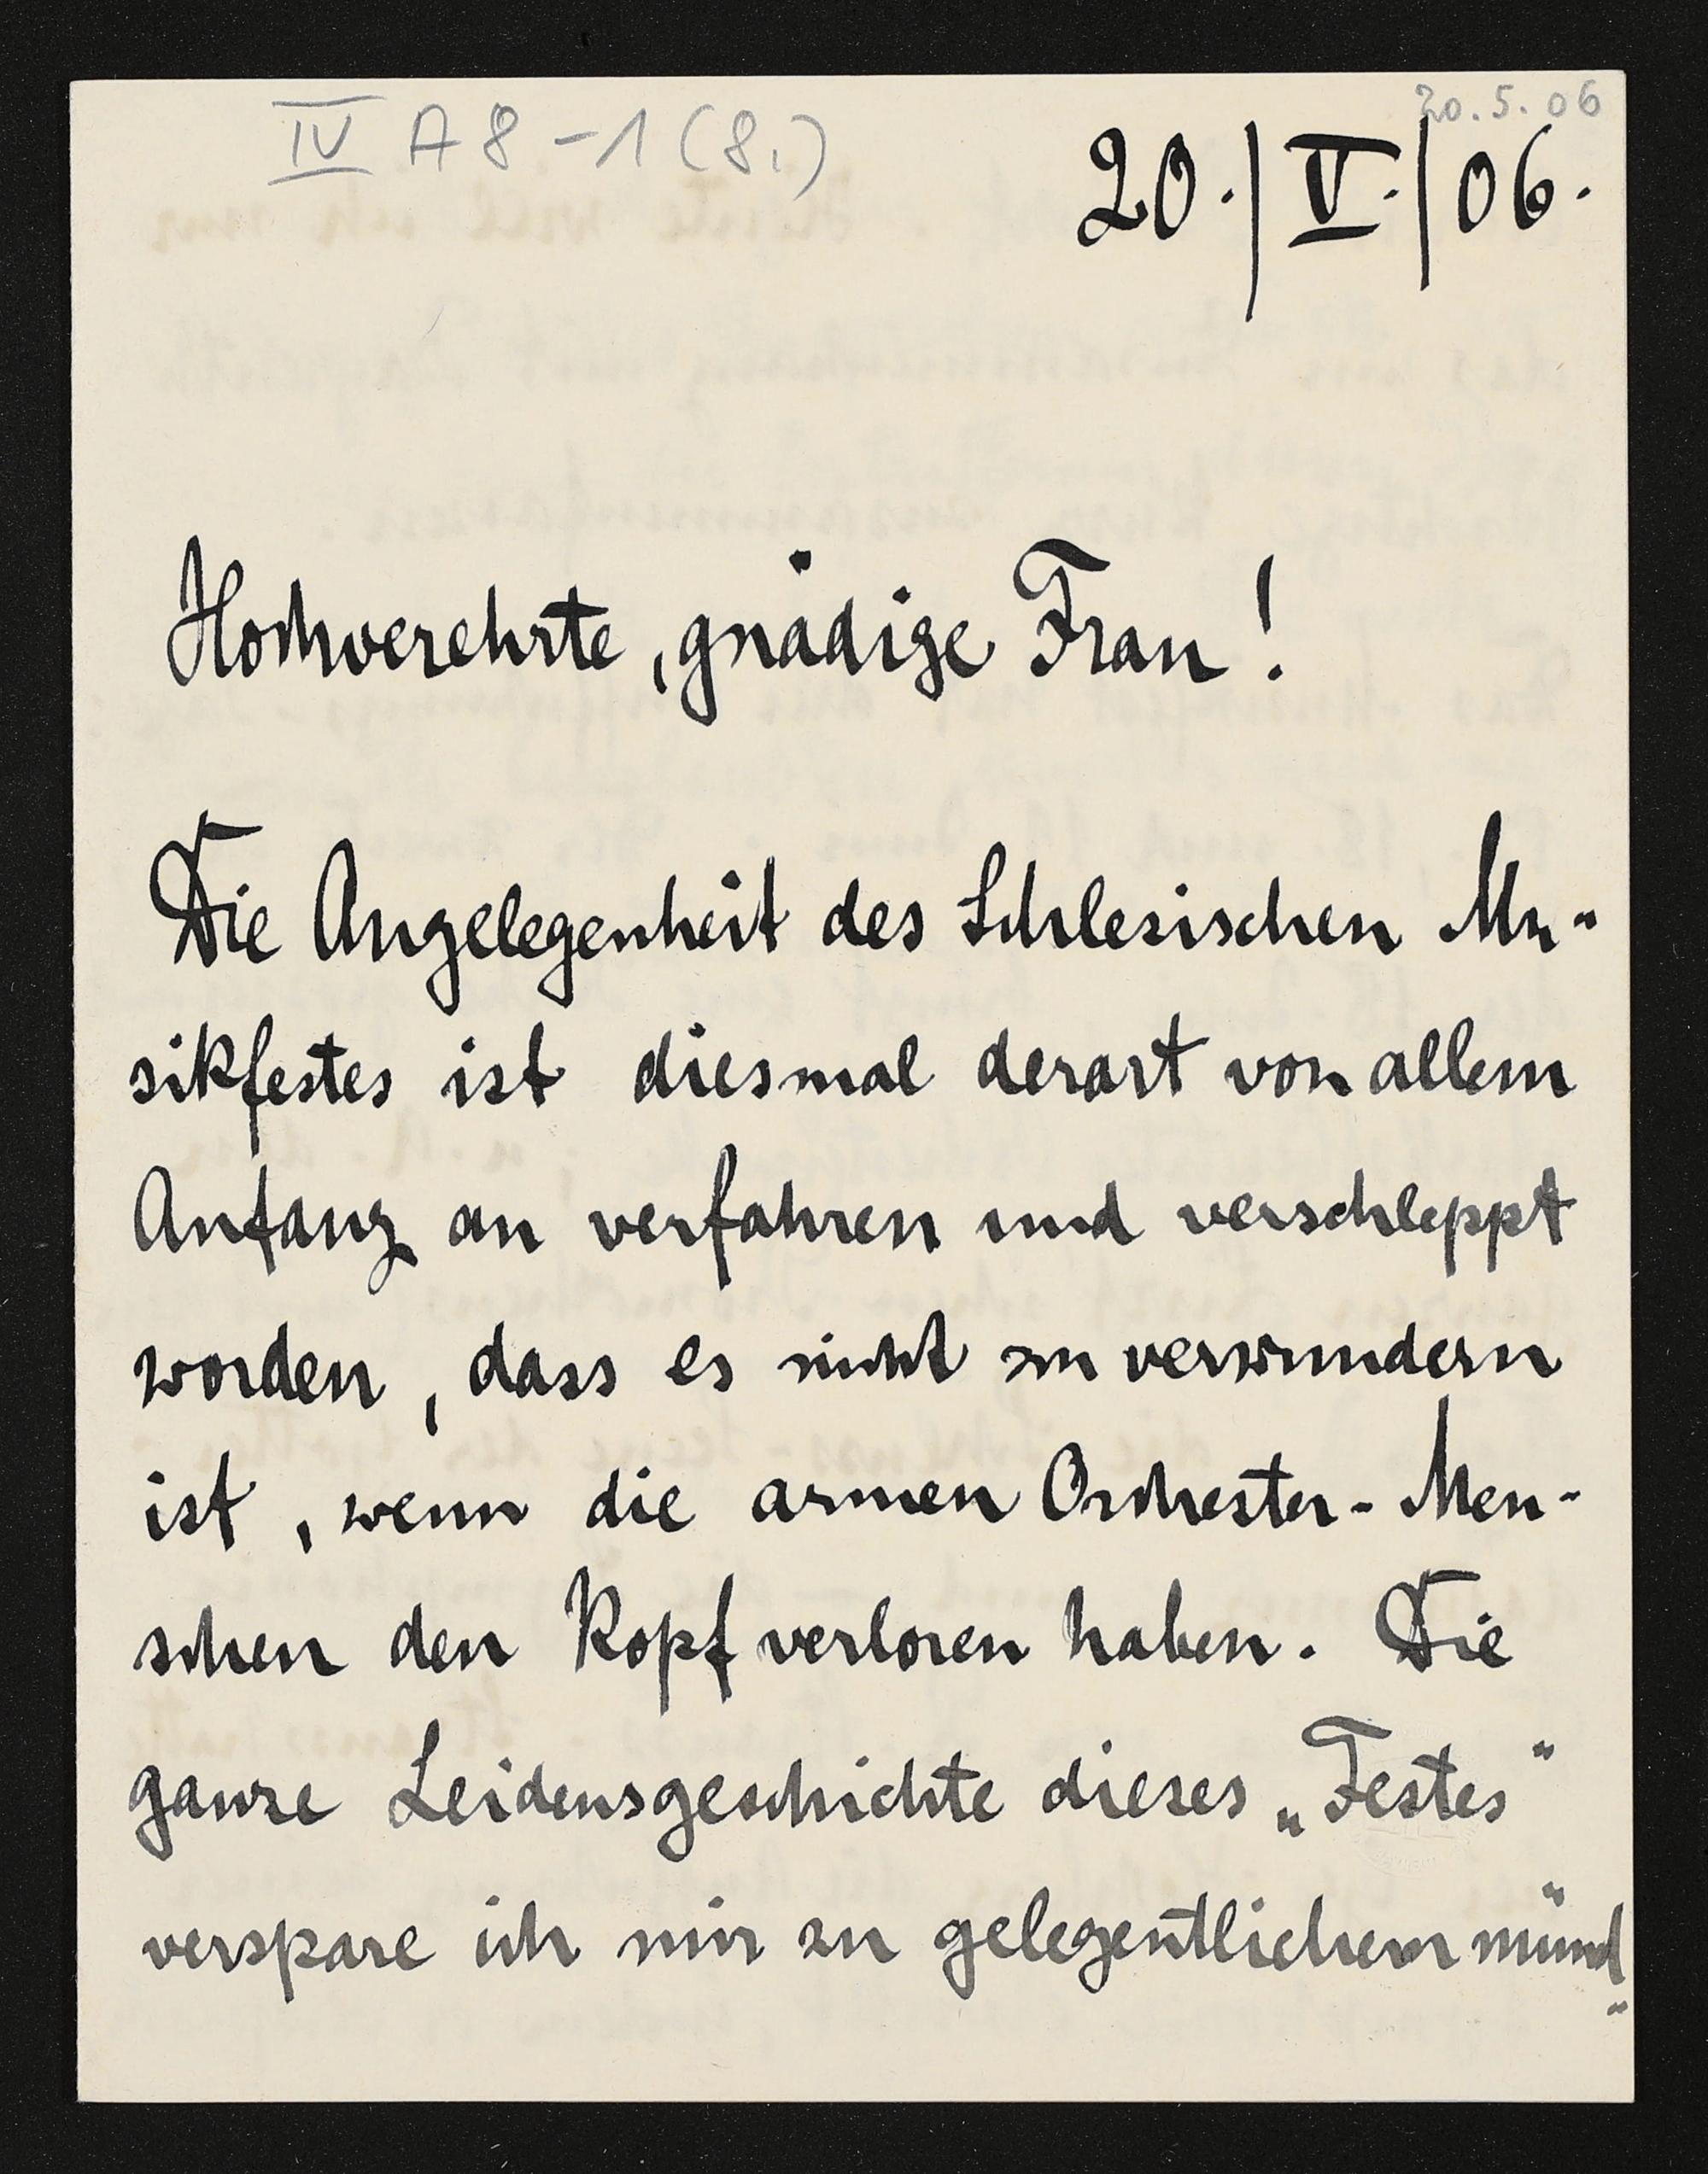 IV A 8 - 1 (8.)
20.5.06
20. | V. | 06.
Hochverehrte, gnädige Frau!
Die Angelegenheit des Schlesischen Mu-
sikfestes ist diesmal derart von allem
Anfang an verfahren und verschleppt
worden, dass es nicht zu verwundern
ist, wenn die armen Orchester-Men-
schen den Kopf verloren haben. Die
ganze Leidensgeschichte dieses „Festes“
verspare ich mir zu gelegentlichem münd-